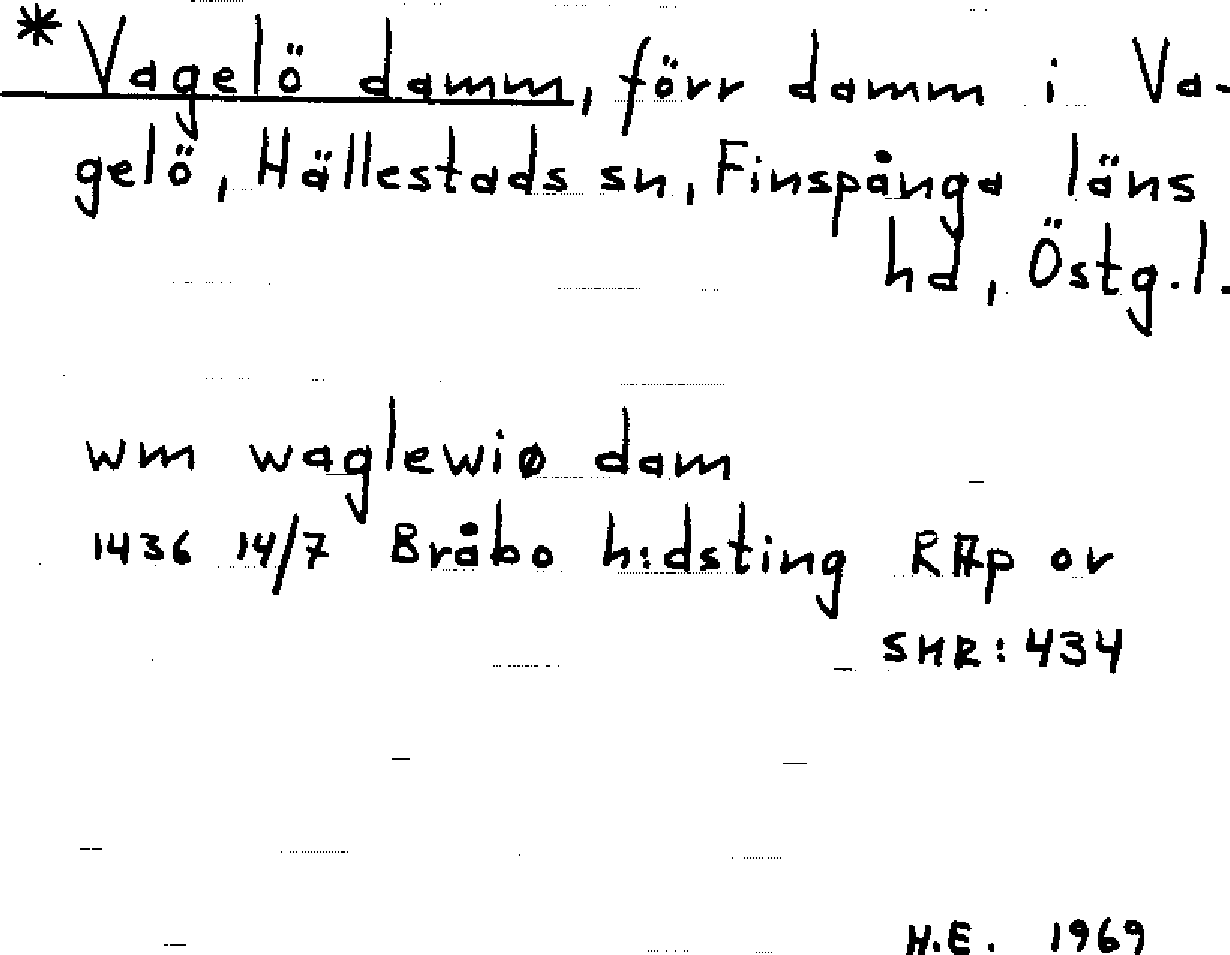 * Vagelö damm, förr damm i Va-
gelö, Hällestads sn, Finspånga läns
hd, Östg.l.
wm waglewiø dam
1436 14/7 Bråbo h:dsting RAp or
SHR: 434
H.E. 1969